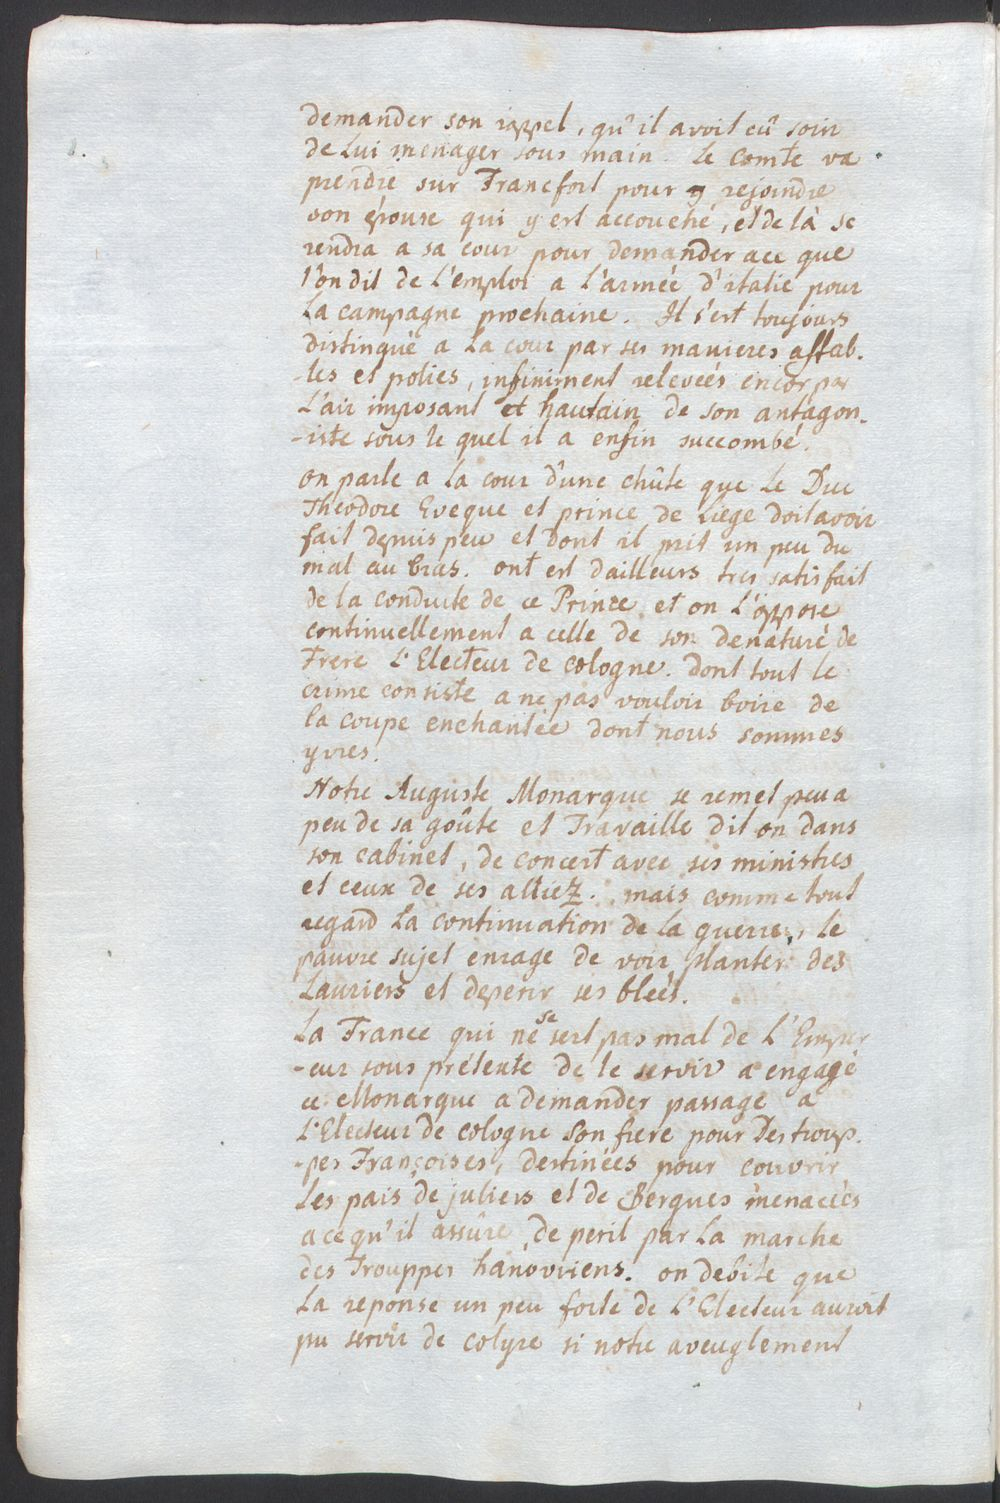 demander son rappel, qu'il avoit eû soin
de Lui menager sous main. Le Comte va
prendre sur Francfort pour y rejoindre
son épouse qui y est accouchè, et de là se
rendra a sa cour pour demander ace que
l'on dit de L'emploi a L'armée d'italie pour
La campagne prochaine. Il s'est toujours
distinguè a La cour par ses manieres affab-
-les et polies, infiniment relevées encor par
L'air imposant et hautain de son antagon-
-iste sous le quel il a enfin succombé.
on parle a La cour d'une chûte que Le Duc
Théodore Eveque et prince de Liege doit avoir
fait depuis peu et dont il prit un peu du
mal au bras. ont est d'ailleurs tres satisfait
de la conduite de ce Prince et on L'oppose
continuellement a celle de son denaturé de
Frere L'Electeur de cologne. dont tout le
crime consiste a ne pas vouloir boire de
la coupe enchantée dont nous sommes
yvres.
Notre Auguste Monarque se remet peu a
peu de sa goûte et Travaille dit on dans
son cabinet, de concert avec ses ministres
et ceux de ses alliez. mais comme tout
regard La continuation de la guerre, le
pauvre sujet enrage de voir planter des
Lauriers et deperir ses bleés.
La France qui ne se sert pas mal de L'Emper
-eur sous prétexte de le servir a engagé
ce Monarque a demander passage a
L'Electeur de cologne son frere pour Des troup-
-pes Françoises, destinées pour couvrir
Les pais de juliers et de Bergues menacées
a ce qu'il assûre de peril par La marche
des Trouppes hanovriens. on debite que
La reponse un peu forte de L'Electeur auroit
pu servir de colyre si notre aveuglement